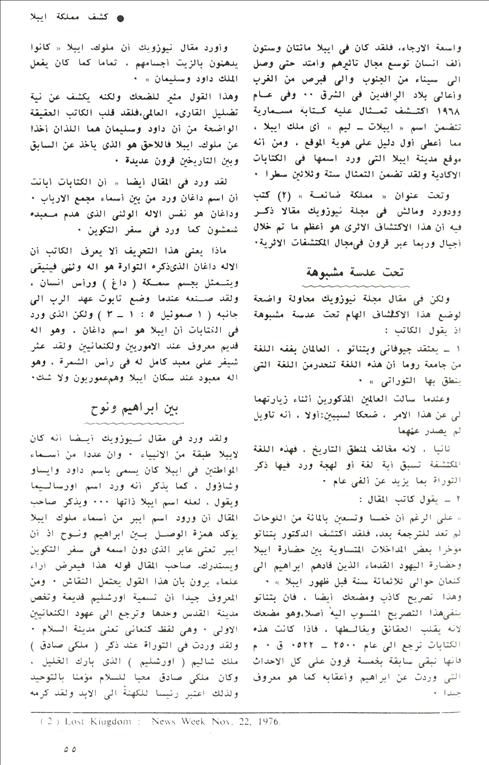 ● كشف مملكة ايبلا
واسعة الارجاء، فلقد كان في ايبلا مائتان وستون
ألف انسان توسع مجال تأثيرهم وامتد حتى وصل
الى سيناء من الجنوب والى قبرص من الغرب
وأعالى بلاد الرافدين في الشرق ٠٠ وفى عام
١٩٦٨ اكتشف تمثال عليه كتابة مسمارية
تتضمن اسم « ايبلات ـ ليم » أى ملك ايبلا ،
مما أعطى أول دليل على هوية الموقع ، ومن أنه
موقع مدينة ايبلا التى ورد اسمها فى الكتابات
الاكادية ولقد تضمن التمثال ستة وثلاثين سطرا ٠
وتحت عنوان « مملكة ضائعة » (٢) كتب
وودورد ومالش في مجلة نيوزويك مقالا ذكر
فيه أن هذا الاكتشاف الاثرى هو أعظم ما تم خلال
أجيال وربما عبر قرون في مجال المكتشفات الاثرية٠
تحت عدسة مشبوهة
ولكن في مقال مجلة نيوزويك محاولة واضحة
لوضع هذا الاكتشاف الهام تحت عدسة مشبوهة
اذ يقول الكاتب :
١ ـ يعتقد جيوفانى وبتناتو ، العالمان بفقه اللغة
من جامعة روما أن هذه اللغة تنحدر من اللغة التى
ينطق بها التوراتى » ٠
وعندما سألت العالمين المذكورين أثناء زيارتهما
لى عن هذا الامر ، ضحكا لسببين : أولا ، أنه تأويل
لم يصدر عنهما
ثانيا ، لانه مخالف لمنطق التاريخ ، فهذه اللغة
المكتشفة تسبق أية لغة أو لهجة ورد فيها ذكر
التوراة بما يزيد عن ألفى عام ٠
٢ ـ يقول كاتب المقال :
« على الرغم أن خمسا وتسعين بالمائة من اللوحات
لم تعد للترجمة بعد، فلقد اكتشف الدكتور بتناتو
مؤخرا بعض المداخلات المتساوية بين حضارة ايبلا
وحضارة اليهود القدماء الذين قادهم ابراهيم الى
كنعان حوالى ثلاثمائة سنة قبل ظهور ايبلا » ٠
وهذا تصريح كاذب ومضعك أيضا ، فان بتناتو
ينفى هذا التصريح المنسوب اليه أصلا، وهو مضعك
لانه يقلب الحقائق ويغالطها ، فاذا كانت هذه
الكتابات ترجع الى عام ٢٥٠٠ ـ ٠٥٢٢ ق ٠ م
فانها تبقى سابقة بخمسة قرون على كل الاحداث
التى وردت عن ابراهيم وأعقابه كما هو معروف
جيدا ٠
وأورد مقال نيوزويك أن ملوك، ايبلا « كانوا
يدهنون بالزيت أجسامهم ، تماما كما كان يفعل
الملك داود وسليمان » ٠
وهذا القول مثير للضحك ولكنه يكشف عن نية
تضليل القارىء العالمى، فلقد قلب الكاتب الحقيقة
الواضحة من أن داود وسليمان هما اللذان أخذا
عن ملوك، ايبلا فاللاحق هو الذى يأخذ عن السابق
وبين التاريخين قرون عديدة ٠
لقد ورد في المقال أيضا « أن الكتابات أبانت
أن اسم داغان ورد من بين أسماء مجمع الارباب ٠
وداغان هو نفس الاله الوثنى الذى هدم معبده
شمشون كما ورد في سفر التكوين ٠
ماذا يعنى هذا التحريف ألا يعرف الكاتب أن
الاله داغان الذى ذكره التوارة هو اله وثنى فينيقى
ويتمثل بجسم سمكة ( داغ ) ورأس انسان ،
ولقد صنعه عندما وضع تابوت عهد الرب الى
جانبه ( ١ صموئيل ٥ : ١ ـ ٣ ) ولكن الذى ورد
فى الكتابات أن ايبلا هو اسم داغان ، وهو اله
قديم معروف عند الاموريين والكنعانيين ولقد عثر
شيفر على معبد كامل له فى رأس الشمرة ، وهو
اله معبود عند سكان ايبلا وهم عموريون ولا شك٠
بين ابراهيم ونوح
ولقد ورد في مقال نيوزويك أيضا أنه كان
لايبلا طبقة من الانبياء ٠ وان عددا من أسماء
المواطنين في ايبلا كان يسمى باسم داود وايساو
وشاؤول ، كما يذكر أنه ورد اسم اورساليما
ويقول ، لعله اسم ايبلا ذاتها ٠٠٠ ويذكر صاحب
المقال أن ورود اسم ايبر من أسماء ملوك ايبلا
يؤكد همزة الوصل بين ابراهيم ونوح اذ أن
ايبر تعنى عابر الذى دون اسمه فى سفر التكوين
ويستدرك، صاحب المقال قوله هذا فيعرض آراء
علماء يرون بأن هذا القول يحتمل النقاش ٠ ومن
المعروف جيدا أن تسمية اورشليم قديمة وتخص
مدينة القدس وحدها وترجع الى عهود الكنعانيين
الاولى ٠ وهى لفظ كنعانى تعنى مدينة السلام ٠
ولقد وردت في التوراة عند ذكر ( ملكى صادق )
ملك شاليم ( اورشليم ) الذى بارك الخليل ،
وكان ملكى صادق محبا للسلام مؤمنا بالتوحيد
ولذلك اعتبر رئيسا للكهنة الى الابد ولقد كرمه
(2) Lost Kingdom : News Week Nov. 22, 1976.
٥٥